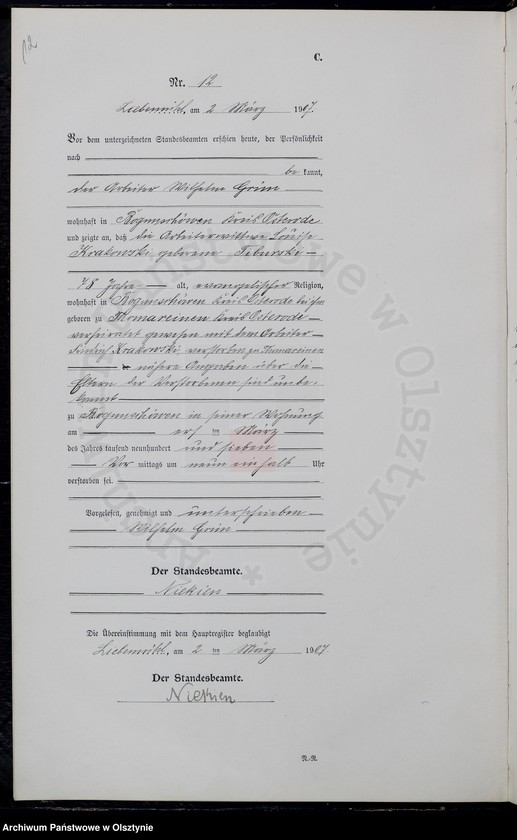 12
C.
Nr. 12
am 2 März 1907.
Vor dem unterzeichneten Standesbeamten erschien heute, der Persönlichkeit
nach
be kannt,
der Arbeiter Wilhelm Grün
wohnhaft in Kreis Osterode
und zeigte an, daß die Arbeiterwittwe Louise
Krakowski geborene
78 Jahre alt, evangelischer Religion,
wohnhaft in Kreis Osterode
geboren zu Thomareinen Kreis Osterode
verheiratet gewesen mit dem Arbeiter
Krakowski, verstorben zu Thomareinen
nähere Angaben über die
Eltern der Verstorbenen sind unbe-
kannt
zu in seiner Wohnung
am ersten März
des Jahres tausend neunhundert und sieben
Vor mittags um neun einhalb Uhr
verstorben sei.
Vorgelesen, genehmigt und unterschrieben
Wilhelm Grün
Der Standesbeamte.
Niekien
Die Übereinstimmung mit dem Hauptregister beglaubigt
am 2 ten März 1907.
Der Standesbeamte.
Niekien
N.-R.
Archiwum Państwowe w Olsztynie
Archiwum Państwowe w Olsztynie *